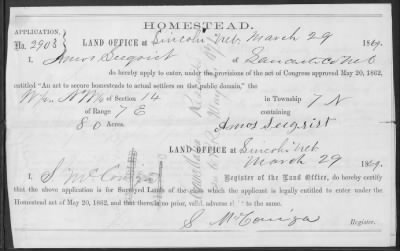 HOMESTEAD.
APPLICATION,
No. 2903
LAND OFFICE at Lincoln Neb, March 29 1869.
I, Amos Seeqrist of Lancaster Co Neb
do hereby apply to enter, under the provisions of the act of Congress approved May 20, 1862,
entitled "An act to secure homestead to actual settlers on the public domain," the
W½ NW¼ of Section 14 in Township 7 N
of Range 7 E containing
80 Acres.
Amos Seeqrist
LAND OFFICE at Lincoln Neb
March 29 1869.
I, S McConiga, Register of the Land Office, do hereby certify
that the above application is for Surveyed Lands of the class which the applicant is legally entitled to enter under the
Homestead act of May 20, 1862, and that there is no prior, valid, adverse right to the same.
S McConiga
Register.